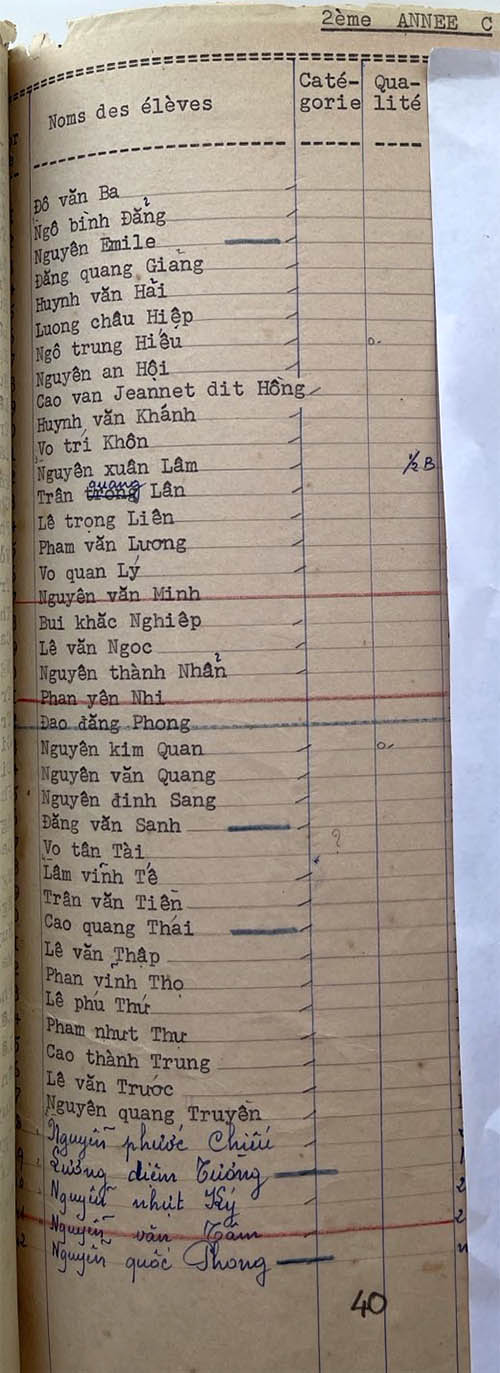 2ème ANNEE C
Noms des élèves
Caté-
gorie
Qua-
lité
Đô văn Ba
Ngô bình Đẳng
Nguyên Emile
Đăng quang Giảng
Huynh văn Hải
Luong châu Hiệp
Ngô trung Hiếu o-
Nguyên an Hội
Cao van Jeannet dit Hồng
Huynh văn Khánh
Vo trí Khôn
Nguyên xuân Lâm ½ B
quang
Trân trong Lân
Lê trọng Liên
Pham văn Lương
Vo quan Lý
Nguyên văn Minh
Bui khăc Nghiêp
Lê văn Ngoc
Nguyên thành Nhẩn
Phan yên Nhi
Đao đăng Phong
Nguyên kim Quan o-
Nguyên văn Quang
Nguyên đinh Sang
Đăng văn Sanh
?
Vo tân Tài
Lâm vĩnh Tế
Trân văn Tiền
Cao quang Thái
Lê văn Thập
Phan vĩnh Thọ
Lê phú Thứ
Pham nhưt Thư
Cao thành Trung
Lê văn Trước
Nguyên quang Truyền
Nguyễn phước Chiếu
Lương diêm Tường
Nguyễn nhựt Ký
Nguyễn văn Tâm
Nguyễn quốc Phong
40